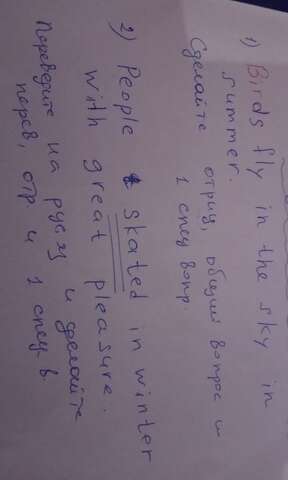 1) Birds fly in the sky in
summer.
Сделайте отриц, общий вопрос и
1 спец вопр.
2) People skated in winter
with great pleasure.
Переведите на рус яз и сделайте
перев, отр и 1 спец в.